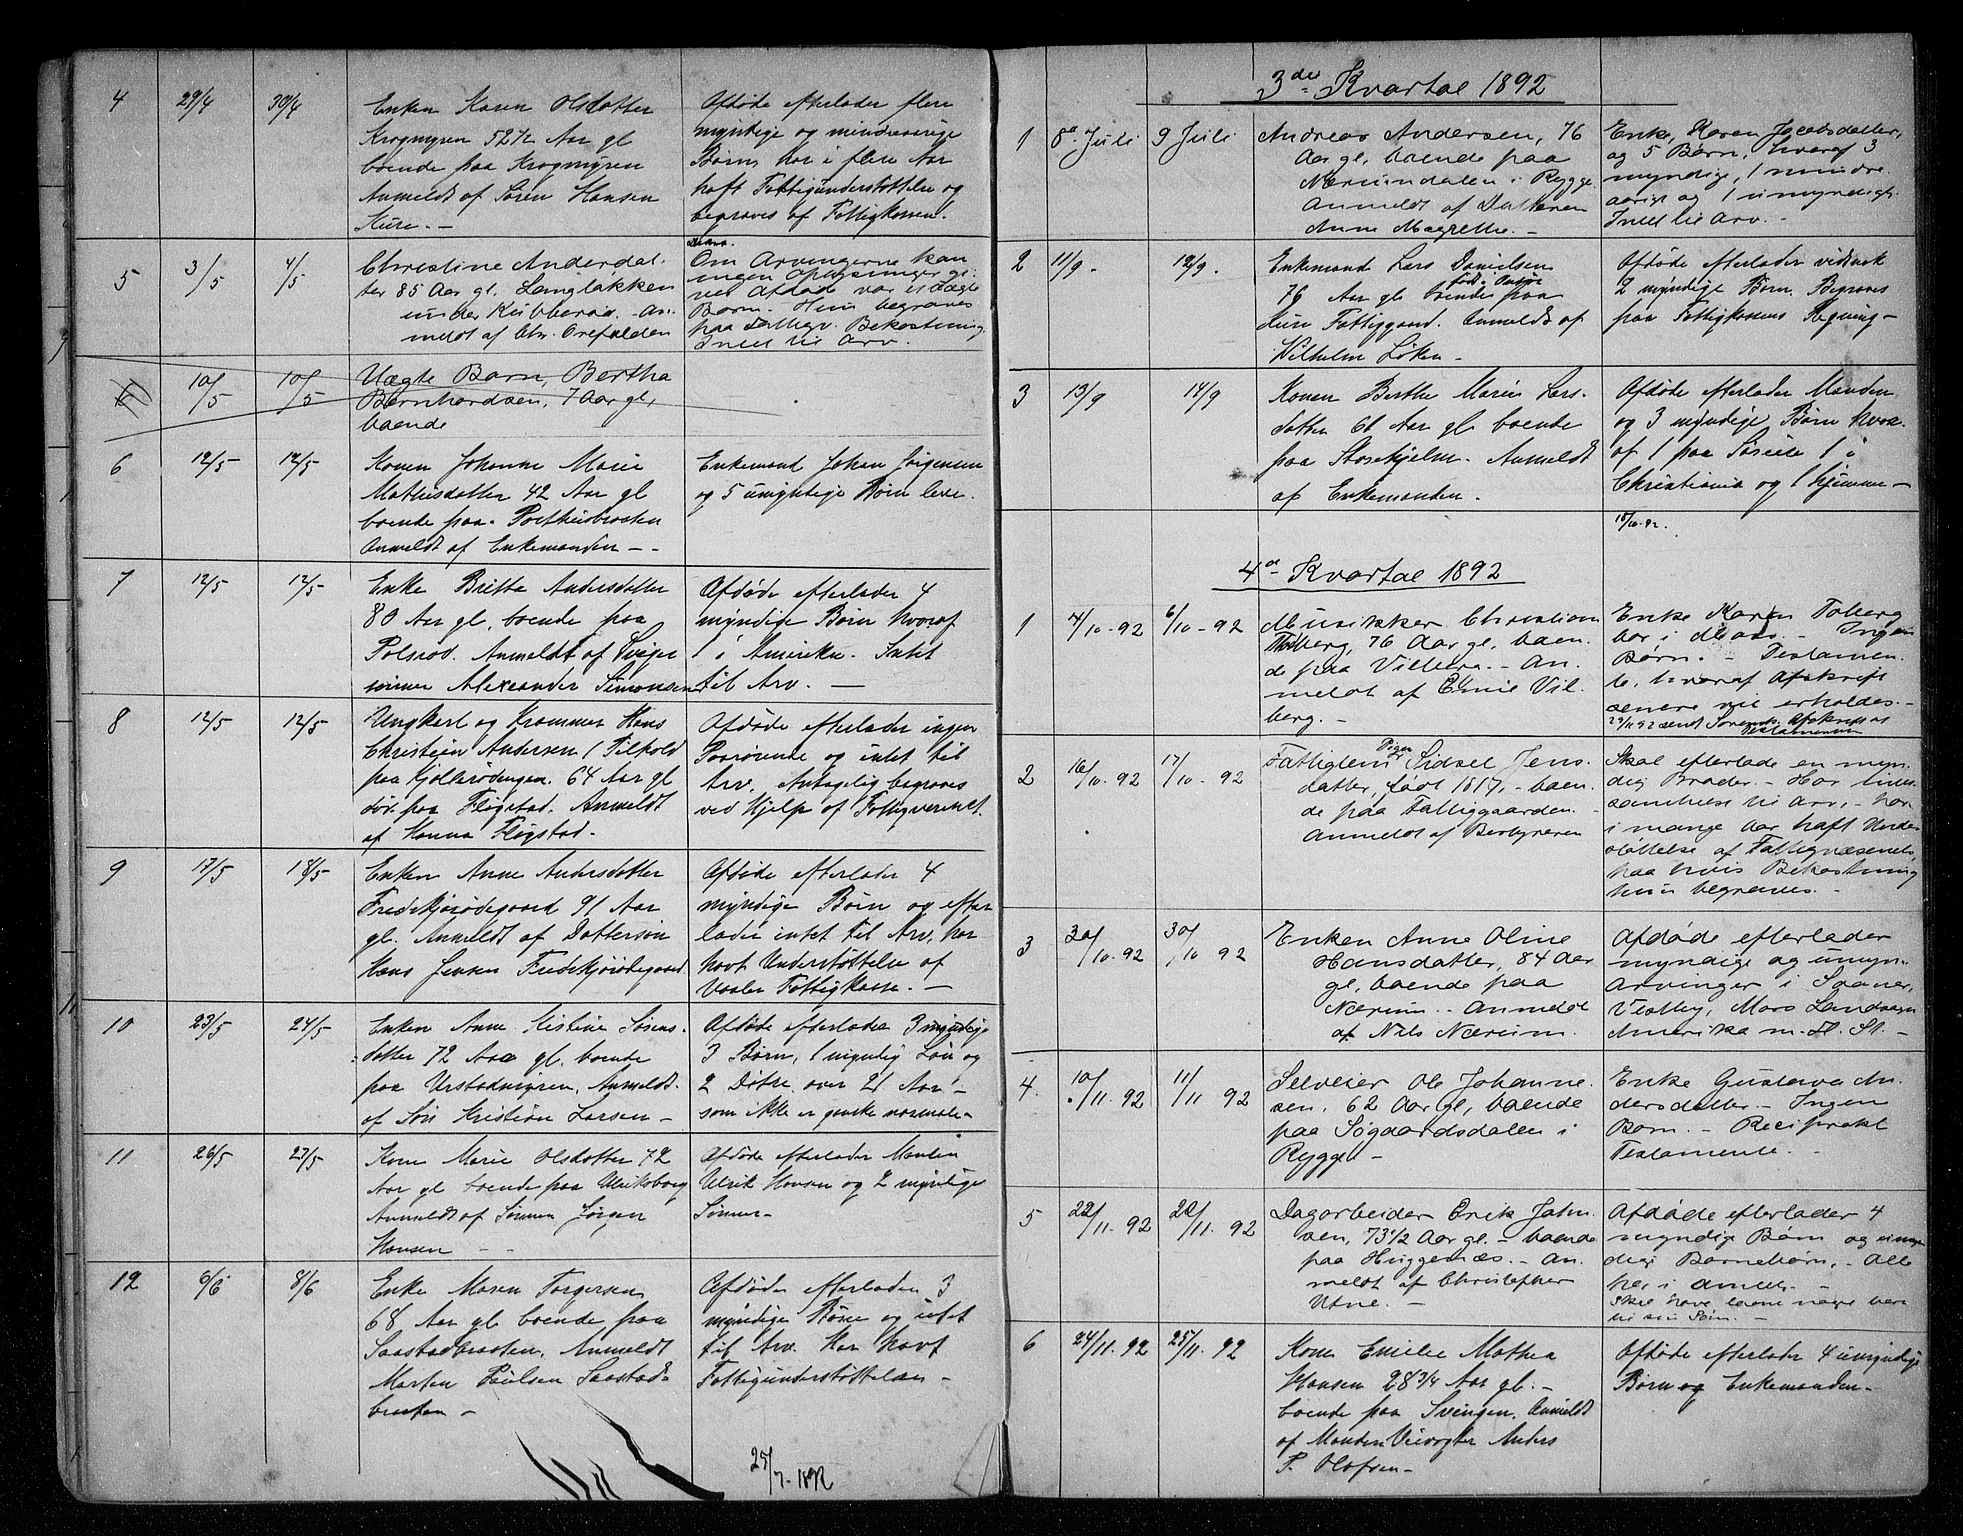 4 29/4 30/4
Enken Karen Olsdatter
Krogmyren 52 1/2 Aar gl
boende paa Krogmyren
Anmeldt af Sören Hansen
Kure. -
Afdøde efterlader flere
myndige og mindreaarige
Børn, har i flere Aar
haft Fattigunderstøttelse og
begraves af Fattigkassen.
5 3/5 4/5
Christine Andersdat-
ter 85 Aar gl, Langløkken
under Kubberød. An-
meldt af Chr. Orefalden
Om Arvingerne kan
ingen Oplysninger gi-
ves Afdøde var uægte
Barn. Hun begraves
paa Bekostning
Intet til Arv.
10/5 10/5
Uægte Barn, Bertha
Bernhardsen, 7 Aar gl,
boende
6 12/5 12/5
Konen Johanne Marie
Mathisdatter 42 Aar gl
boende paa Porthusbraaten
Anmeldt af Enkemanden - -
Enkemand Johan Jørgensen
og 5 umyndige Børn leve.
7 12/5 12/5
Enke Britta Andersdatter
80 Aar gl, boende paa
Polsrod. Anmeldt af Sviger
sönnen Alexander Simonsen
Afdøde efterlader 4
myndige Børn hvoraf
1 i Amerika. Intet
til Arv. -
8 12/5 12/5
Ungkarl og Krammer Hans
Christian Andersen (Tilhold
paa Kjollerødengen. 64 Aar gl
død paa Flögstad. Anmeldt
af Hanna Flögstad.
Afdøde efterlader ingen
Paarørende og intet til
Arv. Antagelig begraves
ved Hjelp af Fattigvæsenet.
9 17/5 18/5
Enken Anne Andersdatter
Fredskjørødegaard 91 Aar
gl. Anmeldt af Dattersøn
Hans Jensen Fredskjørødegaard
Afdøde efterlader 4
myndige Børn og efter
lader intet til Arv, har
havt Understøttelse af
Vaaler Fattigkasse. -
10 23/5 24/5
Enken Anne Kistine Sørens-
datter 72 Aar gl. boende
paa Urstadmyren, Anmeldt
af Søn Kristian Larsen -
Afdøde efterlader 3 myndige
3 Børn, 1 myndig Søn og
2 Døtre over 21 Aar
som ikke er ganske normale.
11 26/5 27/5
Kone Marie Olsdatter 72
Aar gl boende paa Ulriksborg
Anmeldt af Sønnen Jørgen
Hansen - -
Afdøde efterlader Manden
Ulrik Hansen og 2 myndige
Sønner-
12 6/6 8/6
Enke Maren Torgersen
68 Aar gl boende paa
Saastadbraaten, Anmeldt
Morten Paulsen Saastad-
braaten -
Afdøde efterlader 3
myndige Børn og intet
til Arv. Har havt
Fattigunderstøttelse -
25/7 - 1892
3die Kvartal 1892
1 8de Juli 9 Juli
Andreas Andersen, 76
Aar gl, boende paa
Nærumdalen i Rygge.
Anmeldt af Datteren
Anne Magrethe. -
Enke, Karen Jacobsdatter,
og 5 Børn, hvoraf 3
myndige, 1 mindre
aarige og 1 umyndigt.
Intet til Arv. -
2 11/9. 12/9.
Enkemand Lars Danielsen
76 Aar gl boende paa
Kure Fattiggaard. Anmeldt af
Wilhelm Løken -
Afdøde efterlader vidtnok
2 myndige Børn. Begraves
paa Fattigkassens Regning -
3 13/9 14/9
Konen Berthe Marie Lars-
datter 61 Aar gl boende
paa Storehjelm. Anmeldt
af Enkemanden.
Afdøde efterlader Manden
og 3 myndige Børn hvor-
af 1 paa Søreise 1 i
Christiania og 1 hjemme -
18/10.92.
4de Kvartal 1892
1 4/10-92 6/10-92
Musikker Christian
Thoberg, 76 Aar gl, boen-
de paa Vilberg. - An-
meldt af Emil Vil-
berg. -
Enke Karen Toberg
bor i Moss. - Ingen
Børn. - Testamen-
te, hvoraf Afskrift
senere vil erholdes. -
29/11 92 sendt Sorensk. Afskrift af
Testamentet
2 16/10.92 17/10-92
Fattiglem Pigen Sidsel Jens-
datter, født 1817, - boen-
de paa Fattiggaarden.
Anmeldt af Bestyreren
Skal efterlade en myn-
dig Broder. - Har intet
til Arv, - har
i mange Aar haft Under
støttelse af Fattigvæsenet,
paa hvis Bekostning
hun begraves. -
3 30/10.92 30/10 92
Enken Anne Oline
Hansdatter, 84 Aar
gl, boende paa
Nærum. - Anmeldt
af Nils Nærum.
Afdøde efterlader
myndige og umyn-
Arvinger i Saaner,
Vestby, Moss Landsogn
Amerika m. fl. St. -
4. 10/11.92 11/11 92
Selveier Ole Johanne-
sen, 62 Aar gl, boende
paa Søgaardsdalen i
Rygge -
Enke Gustava An-
dersdatter - Ingen
Børn. - Reciprokt
Testamente. -
5 22/11.92 22/11.92
Dagarbeider Erik John-
sen, 73 1/2 Aar gl. - boende
paa Huggenæs. - An-
meldt af Christopher
Utne. -
Afdøde efterlader 4
myndige Børn og umyn-
dige Børnebørn, - Alle
her i Amtet. -
Skal have
til sin Søn. -
6 24/11.92 25/11.92
Kone Emilie Mathea
Hansen 28 3/4 Aar gl. -
boende paa Svingen, Anmeldt
af Manden Veivogter Anders
P. Olafsen -
Afdøde efterlader 4 umyndige
Børn og Enkemanden -